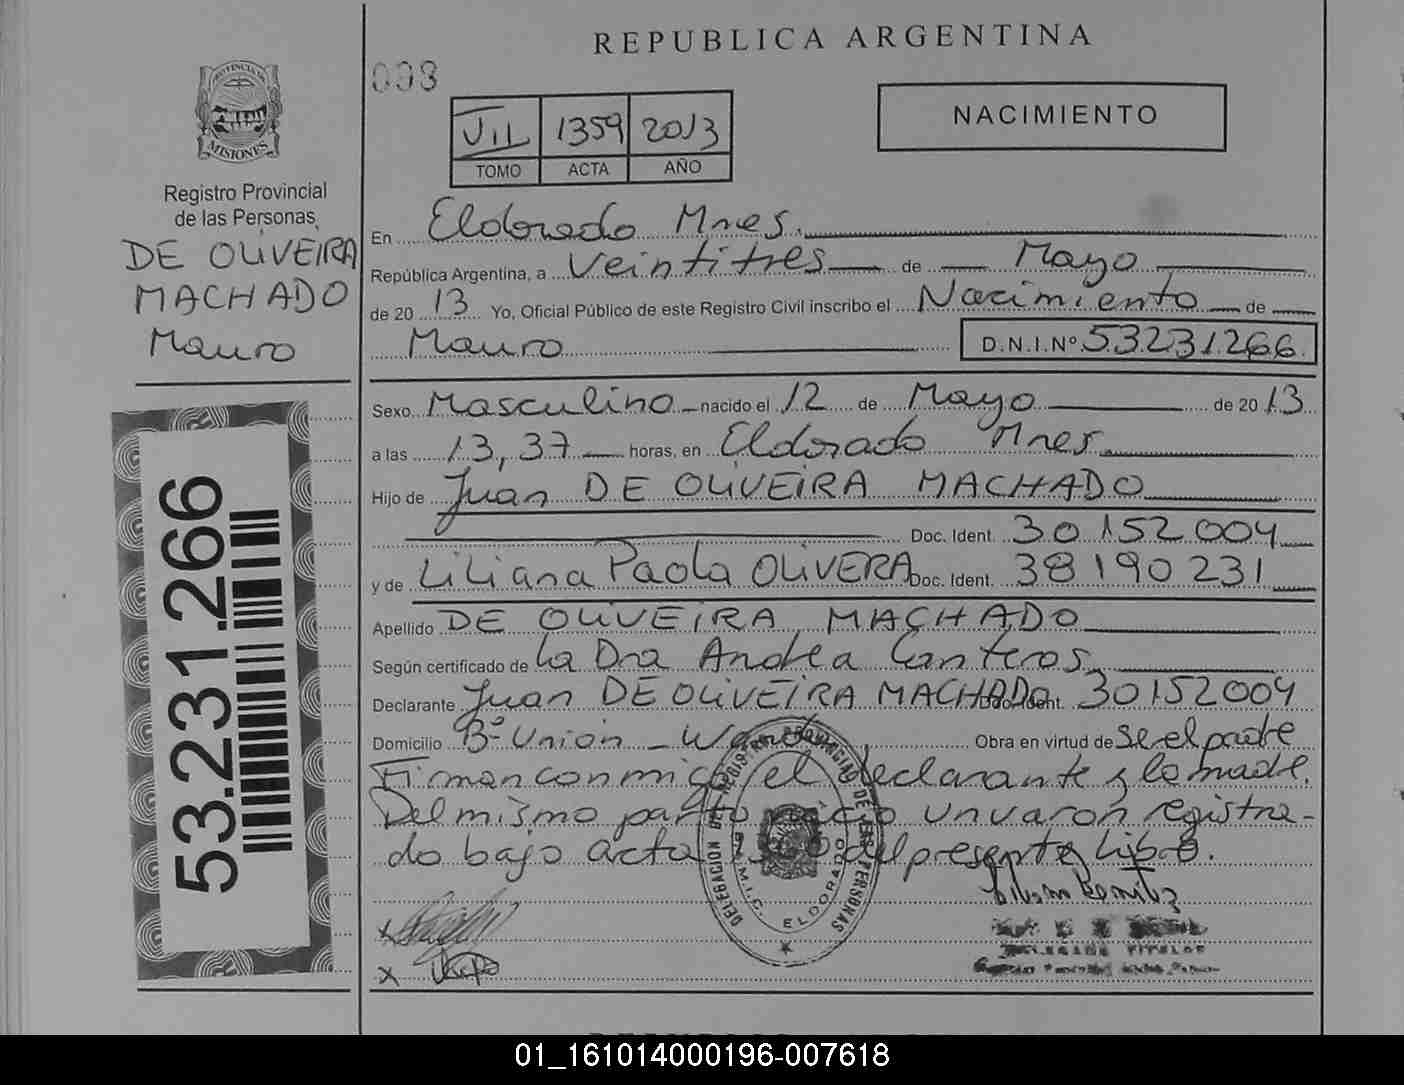 REPUBLICA ARGENTINA
098
PROVINCIA DE
MISIONES
Registro Provincial
de las Personas
DE OLIVEIRA
MACHADO
Mauro
53.231.266
VII 1359 2013
TOMO ACTA AÑO
NACIMIENTO
En Eldorado Mnes.
República Argentina, a Veintitres de Mayo
de 20 13 Yo, Oficial Público de este Registro Civil inscribo el Nacimiento de
Mauro D.N.I.Nº 53231266
Sexo Masculino nacido el 12 de Mayo de 20 13
a las 13,37 horas, en Eldorado Mnes.
Hijo de Juan DE OLIVEIRA MACHADO
Doc. Ident. 30152004
y de Liliana Paola OLIVERA Doc. Ident. 38190231
Apellido DE OLIVEIRA MACHADO
Según certificado de la Dra Andrea Canteros
Declarante Juan DE OLIVEIRA MACHADO Doc. Ident. 30152004
Domicilio Bº Unión - Wanda Obra en virtud de se el padre
Firman conmigo el declarante y la madre.
Del mismo parto nació un varón registra-
do bajo acta del presente Libro.
DELEGACION DEL REGISTRO PROVINCIAL DE LAS PERSONAS
ELDORADO
TITULAR
01_161014000196-007618